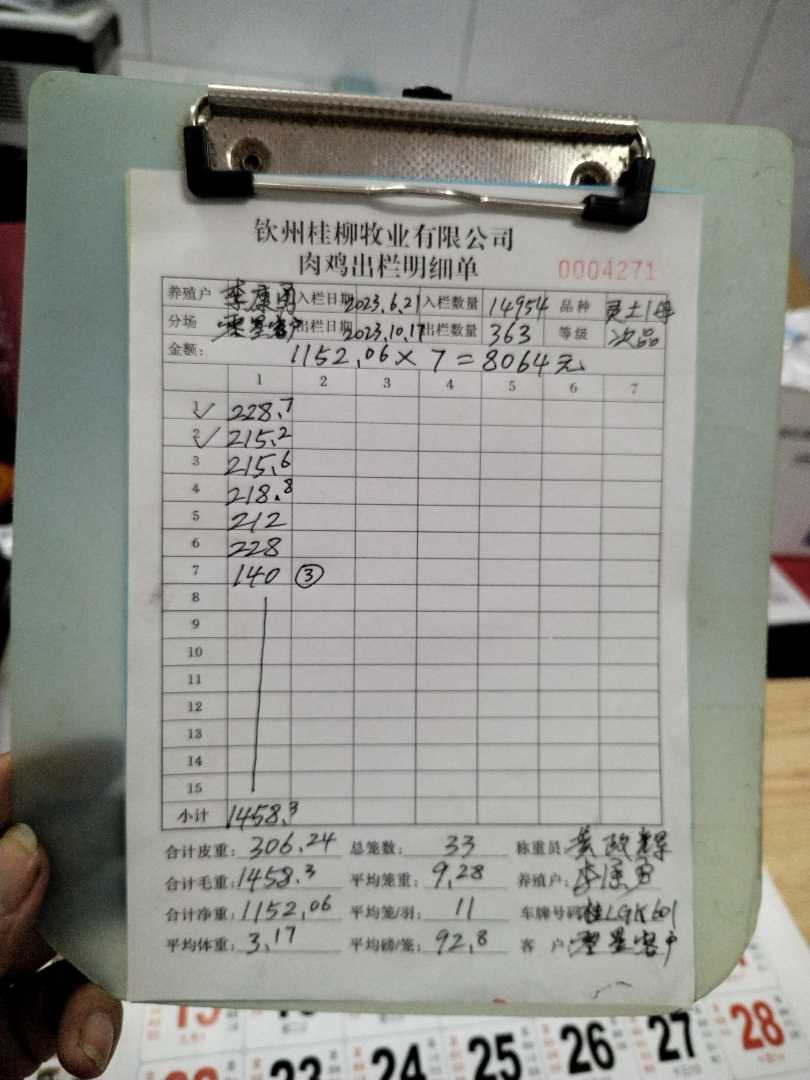 钦州桂柳牧业有限公司
肉鸡出栏明细单 0004271
养殖户 李康勇 入栏日期 2023.6.21 入栏数量 14954 品种 灵土1母
分场 零星客户 出栏日期 2023.10.17 出栏数量 363 等级 次品
金额: 1152.06×7=8064元
1 2 3 4 5 6 7
1 228.7
2 215.2
3 215.6
4 218.8
5 212
6 228
7 140 ③
8
9
10
11
12
13
14
15
小计 1458.3
合计皮重: 306.24 总笼数: 33 称重员: 黄政
合计毛重: 1458.3 平均笼重: 9.28 养殖户: 李康勇
合计净重: 1152.06 平均笼/羽: 11 车牌号码: 桂LGK601
平均体重: 3.17 平均磅/笼: 92.8 客户: 零星客户
22 23 24 25 26 27 28